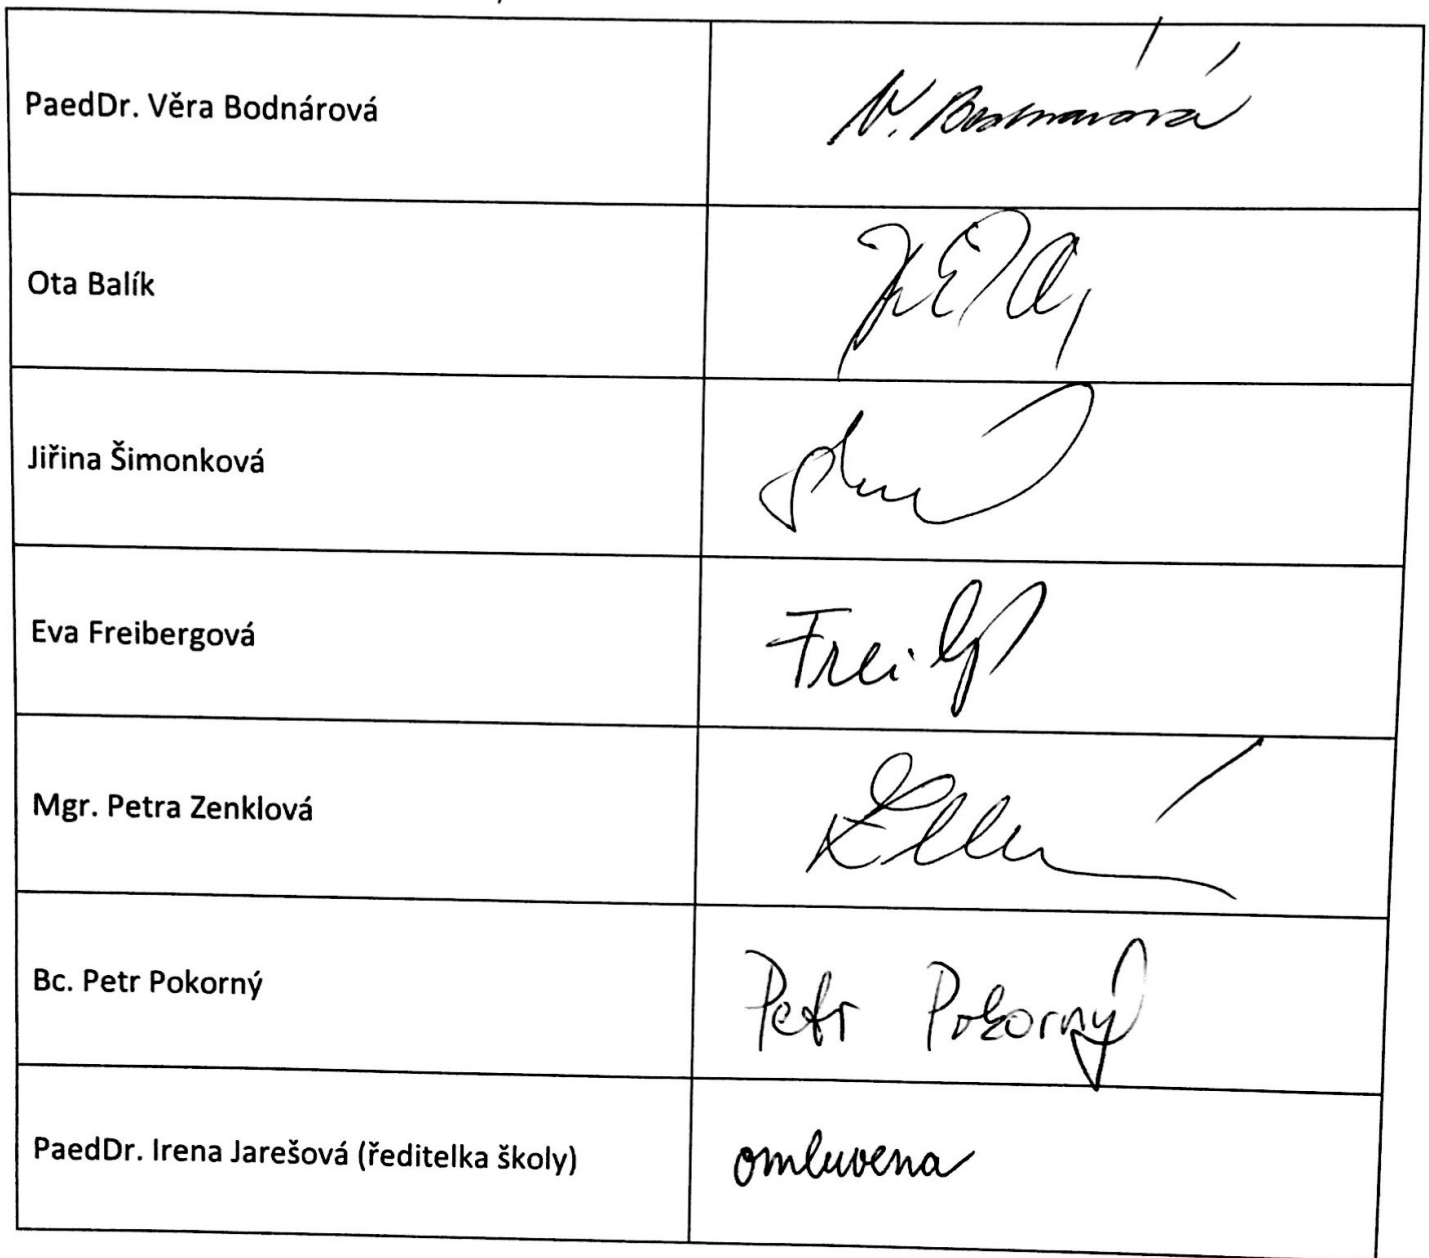 PaedDr. Věra Bodnárová V. Bodnárová
Ota Balík
Jiřina Šimonková
Eva Freibergová
Mgr. Petra Zenklová
Bc. Petr Pokorný Petr Pokorný
PaedDr. Irena Jarešová (ředitelka školy) omluvena